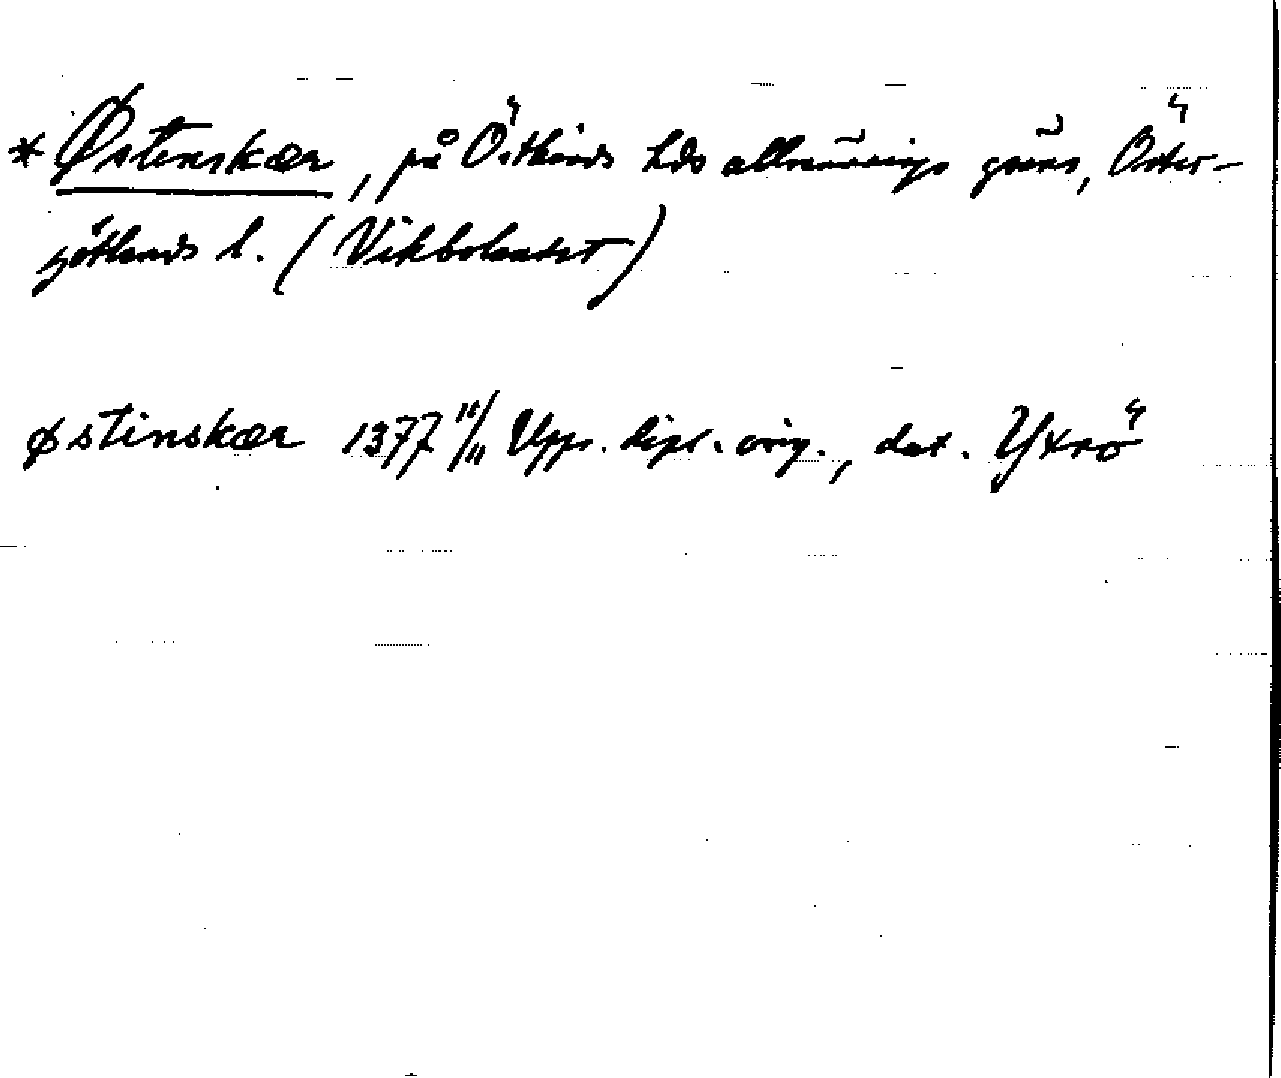 * Østenskær, på Östkinds hds allmännings gräns, Öster-
götlands l. (Vikbolandet)
østinskær 1377 11/11 Upps. dipl. orig., dat. Yxnö